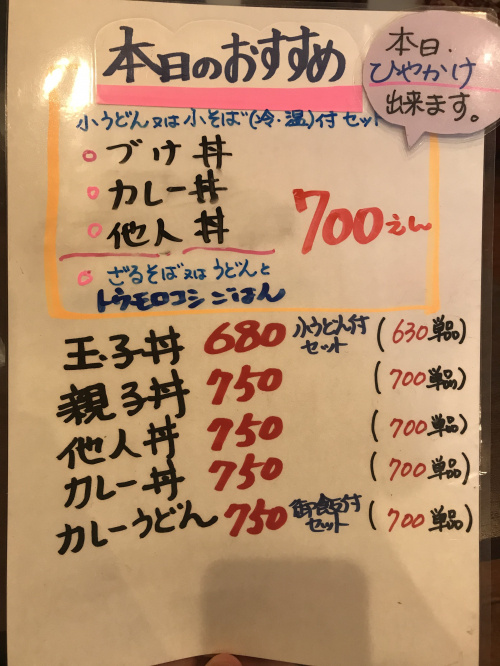 本日のおすすめ
本日・
ひやかけ
出来ます。
小うどん又は小そば(冷・温)付セット
づけ丼
カレー丼
他人丼
700えん
ざるそば又はうどんと
トウモロコシごはん
玉子丼 680 小うどん付セット (630単品)
親子丼 750 (700単品)
他人丼 750 (700単品)
カレー丼 750 (700単品)
カレーうどん 750 御飯付セット (700単品)